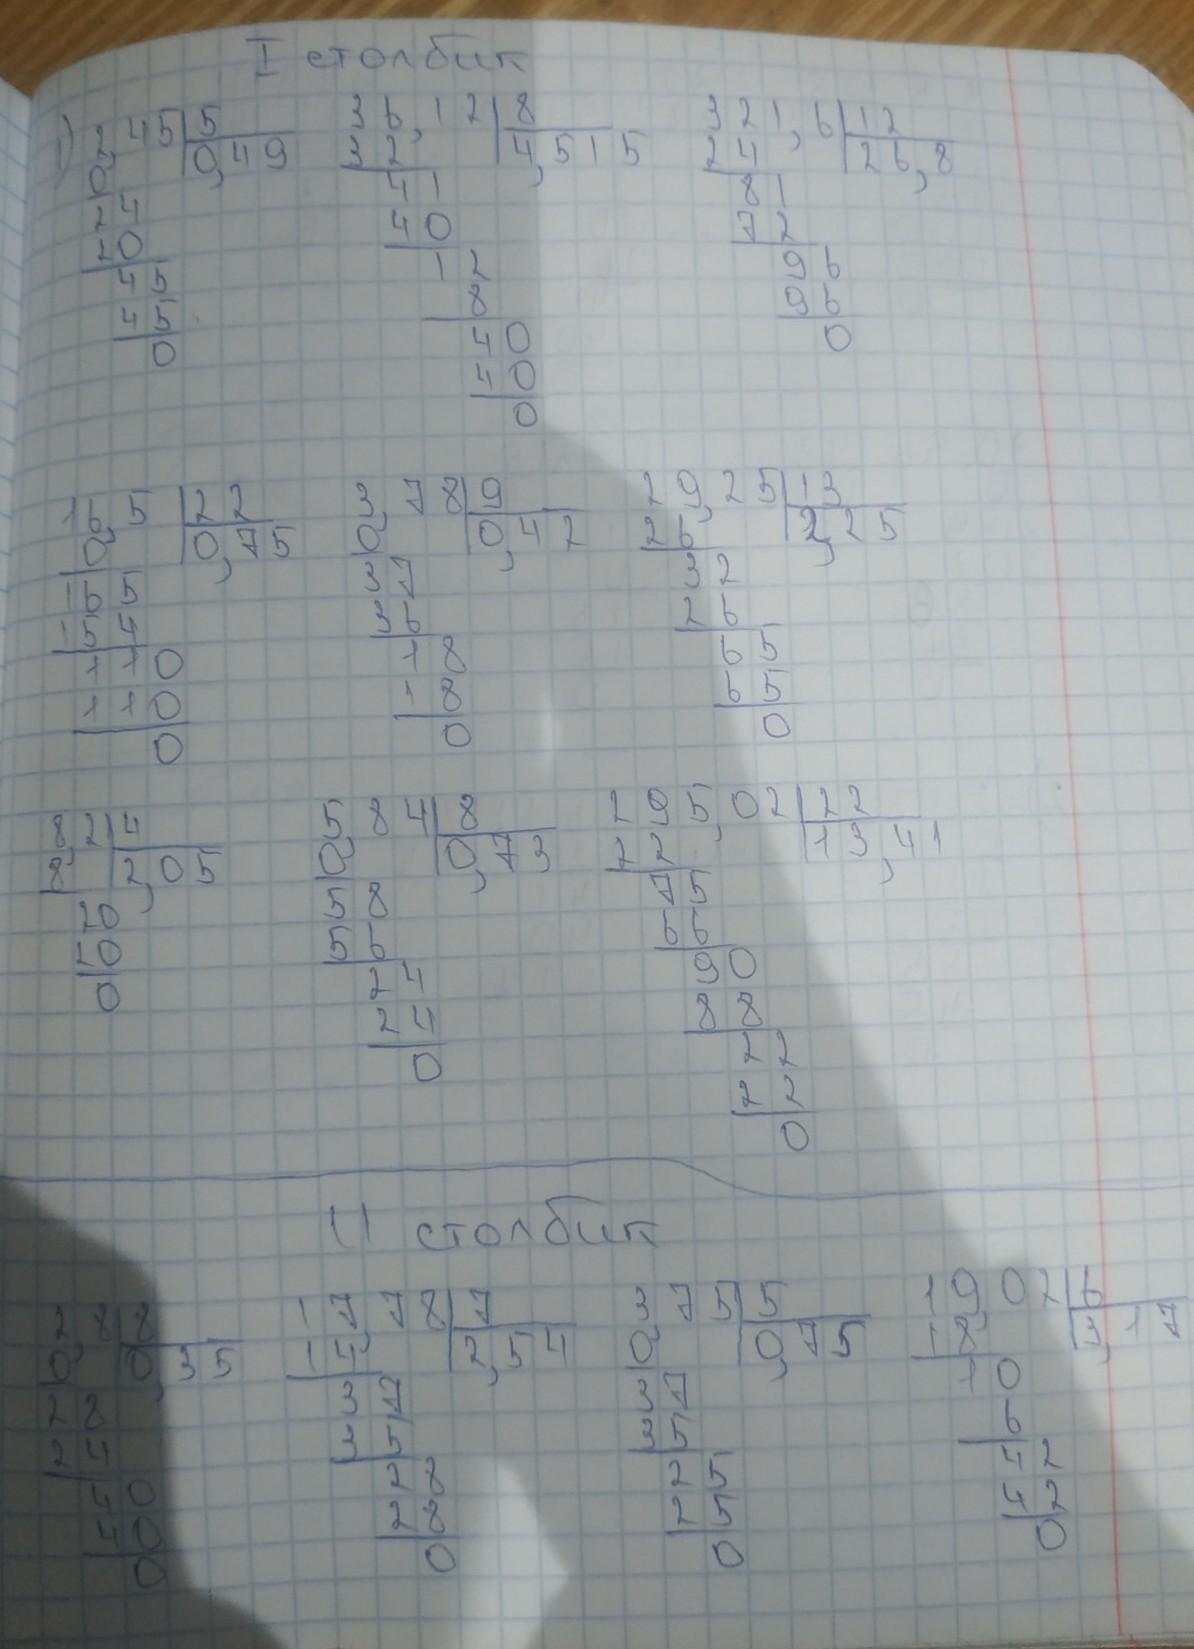 I столбик
1) 2,45 5 36,12 8 321,6 12
0, 0,49 32, 4,515 24 26,8
24 41 81
20 40 72
45 12 96
45 8 96
0 40 0
40
0
16,5 22 3,78 9 29,25 13
0, 0,75 0, 0,42 26, 2,25
165 37 32
154 36 26
110 18 65
110 18 65
0 0 0
8,2 4 5,84 8 295,02 22
8, 2,05 0, 0,73 22 13,41
20 58 75
20 56 66
0 24 90
24 88
0 22
22
0
II столбик
2,8 8 17,78 7 3,75 5 19,02 6
0, 0,35 14, 2,54 0, 0,75 18, 3,17
28 37 37 10
24 35 35 6
40 28 25 42
40 28 25 42
0 0 0 0